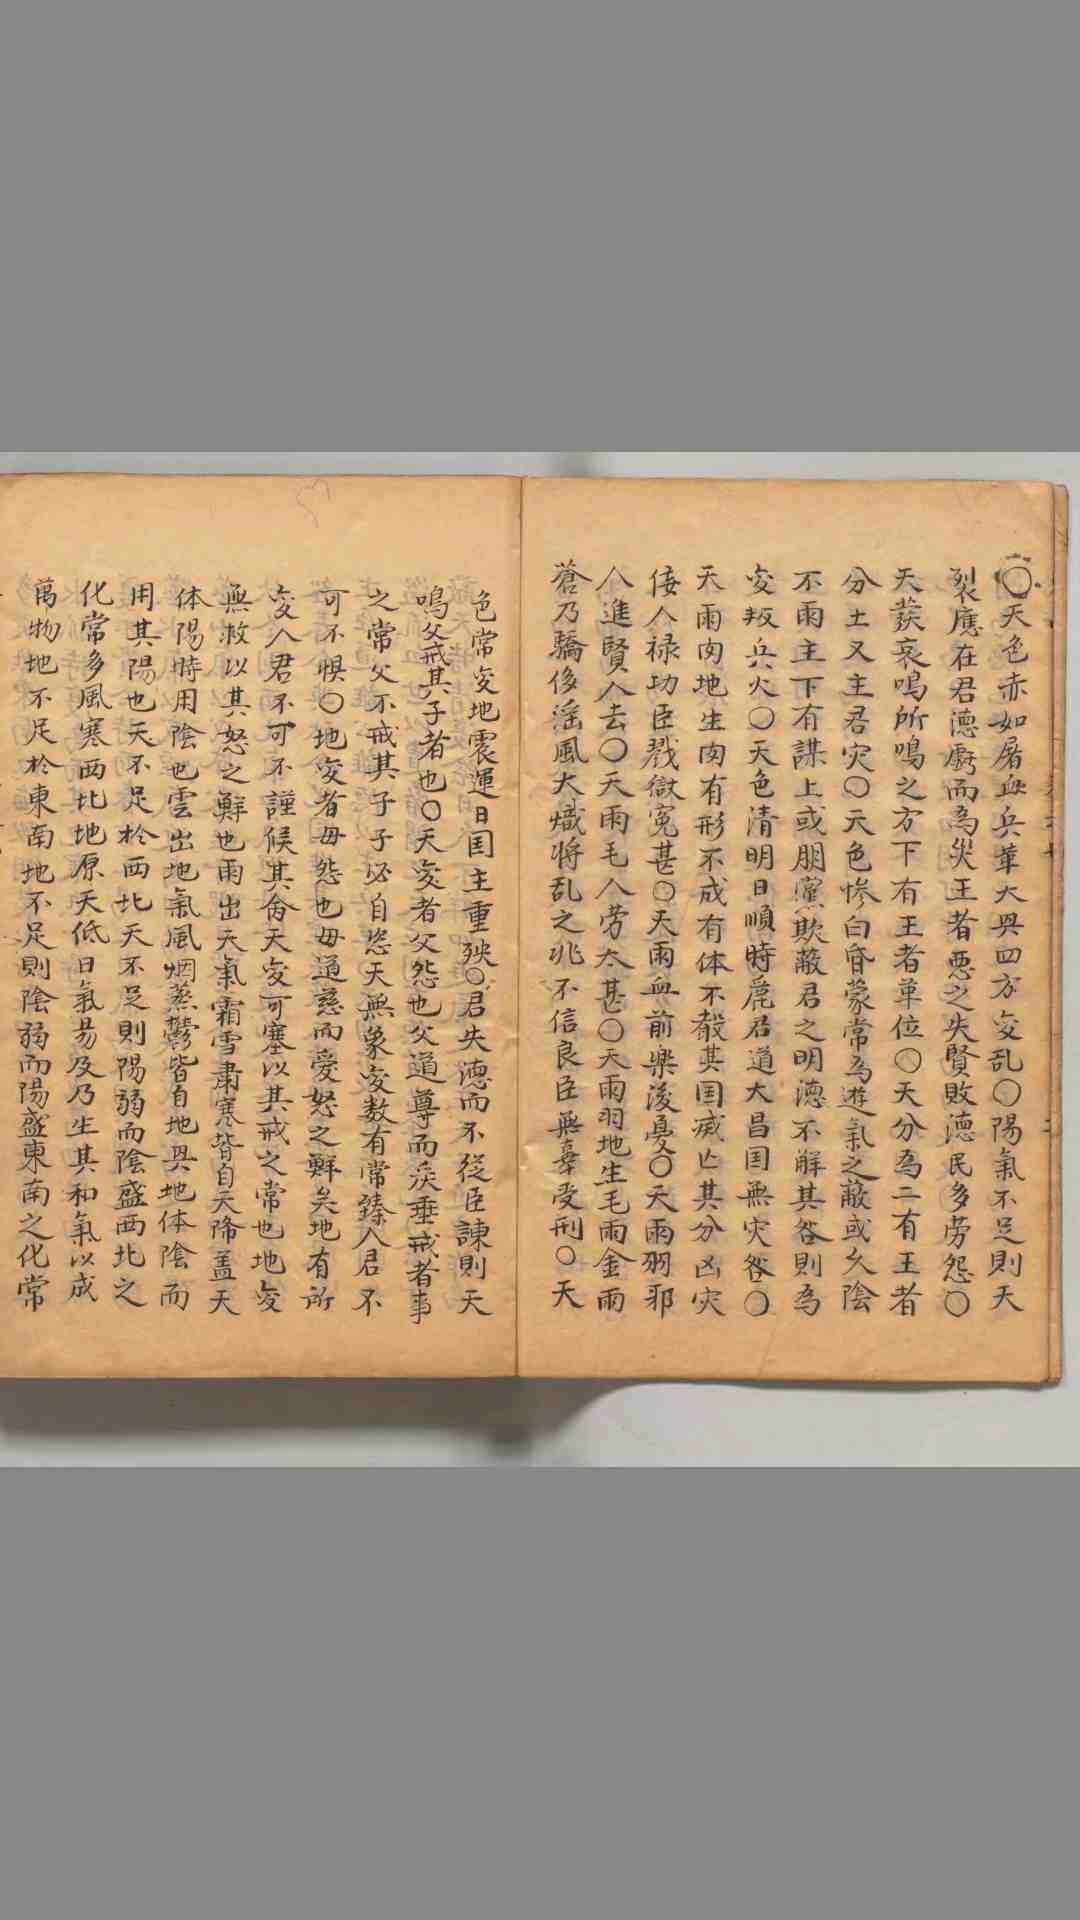 〇天色赤如屠血兵革大興四方変乱〇陽氣不足則天
裂應在君德虧而為災王者惡之失賢敗德民多劳怨〇
天發哀鳴所鳴之方下有王者草位〇天分為二有王者
分土又主君灾〇天色惨白昏蒙常為遊氣之蔽或久陰
不雨主下有謀上或朋黨欺蔽君之明德不解其咎則為
変叛兵火〇天色清明日順時麂君道大昌国無灾咎〇
天雨肉地生肉有形不成有体不殽其国威亡其分凶灾
倿人禄功臣戮獄寃甚〇天雨血前樂後憂〇天雨羽邪
人進賢人去〇天雨毛人劳太甚〇天雨羽地生毛雨金雨
蒼乃驕侈淫風大熾将乱之兆不信良臣無辜受刑〇天
色常変地震運日国主重殃〇君失德而不從臣諫則天
鳴父戒其子者也〇天変者父怨也父道尊而深垂戒者事
之常父不戒其子子必自恣天無象変数有常臻人君不
可不惧〇地変者毋怨也毋道慈而愛怒之鮮矣地有所
変人君不可不謹候其舍天変可塞以其戒之常也地変
無救以其怒之鮮也雨出天氣霜雪肅寒皆自天降盖天
体陽時用陰也雲出地氣風烟蒸鬱皆自地興地体陰而
用其陽也天不足於西北天不足則陽弱而陰盛西北之
化常多風寒西北地原天低日氣易及乃生其和氣以成
萬物地不足於東南地不足則陰弱而陽盛東南之化常